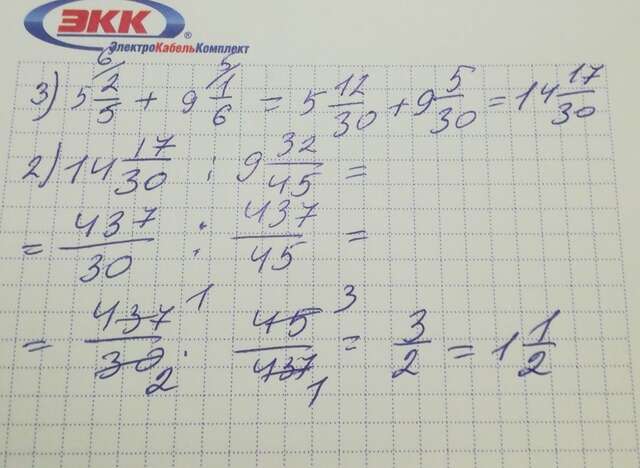 ЭКК ®
ЭлектроКабельКомплект
3) 5 2/5 ⁶ + 9 1/6 ⁵ = 5 12/30 + 9 5/30 = 14 17/30
2) 14 17/30 : 9 32/45 =
= 437/30 : 437/45 =
= 437/30 · 45/437 = 3/2 = 1 1/2
1 3
2 1